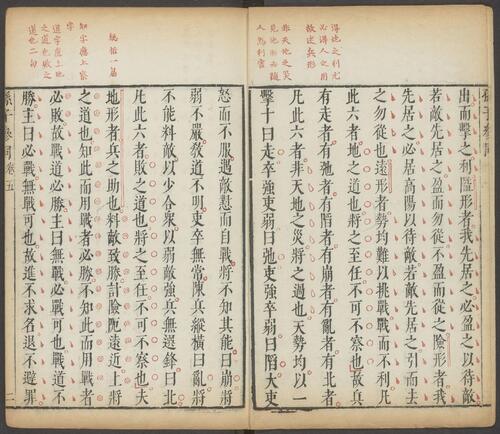 得地之利尤
必得人之用
故述兵形
非天地之災
人爲利害
出而擊之利隘形者我先居之必盈之以待敵
若敵先居之盈而勿從不盈而從之險形者我
先居之必居高陽以待敵若敵先居之引而去
之勿從也遠形者勢均難以挑戰戰而不利凡
此六者地之道也將之至任不可不察也故兵
有走者有弛者有陷者有崩者有亂者有北者
凡此六者非天地之災將之過也夫勢均以一
擊十曰走卒強吏弱曰弛吏強卒弱曰陷大吏
統括一篇
知字應上察
字
道字應上地
之道也敗之
道也二句
怒而不服遇敵懟而自戰將不知其能曰崩將
弱不嚴敎道不明吏卒無常陳兵縱橫曰亂將
不能料敵以少合衆以弱敵強兵無選鋒曰北
凡此六者敗之道也將之至任不可不察也夫
地形者兵之助也料敵致勝計險阨遠近上將
之道也知此而用戰者必勝不知此而用戰者
必敗故戰道必勝主曰無戰必戰可也戰道不
勝主曰必戰無戰可也故進不求名退不避罪
孫子參同卷五
二